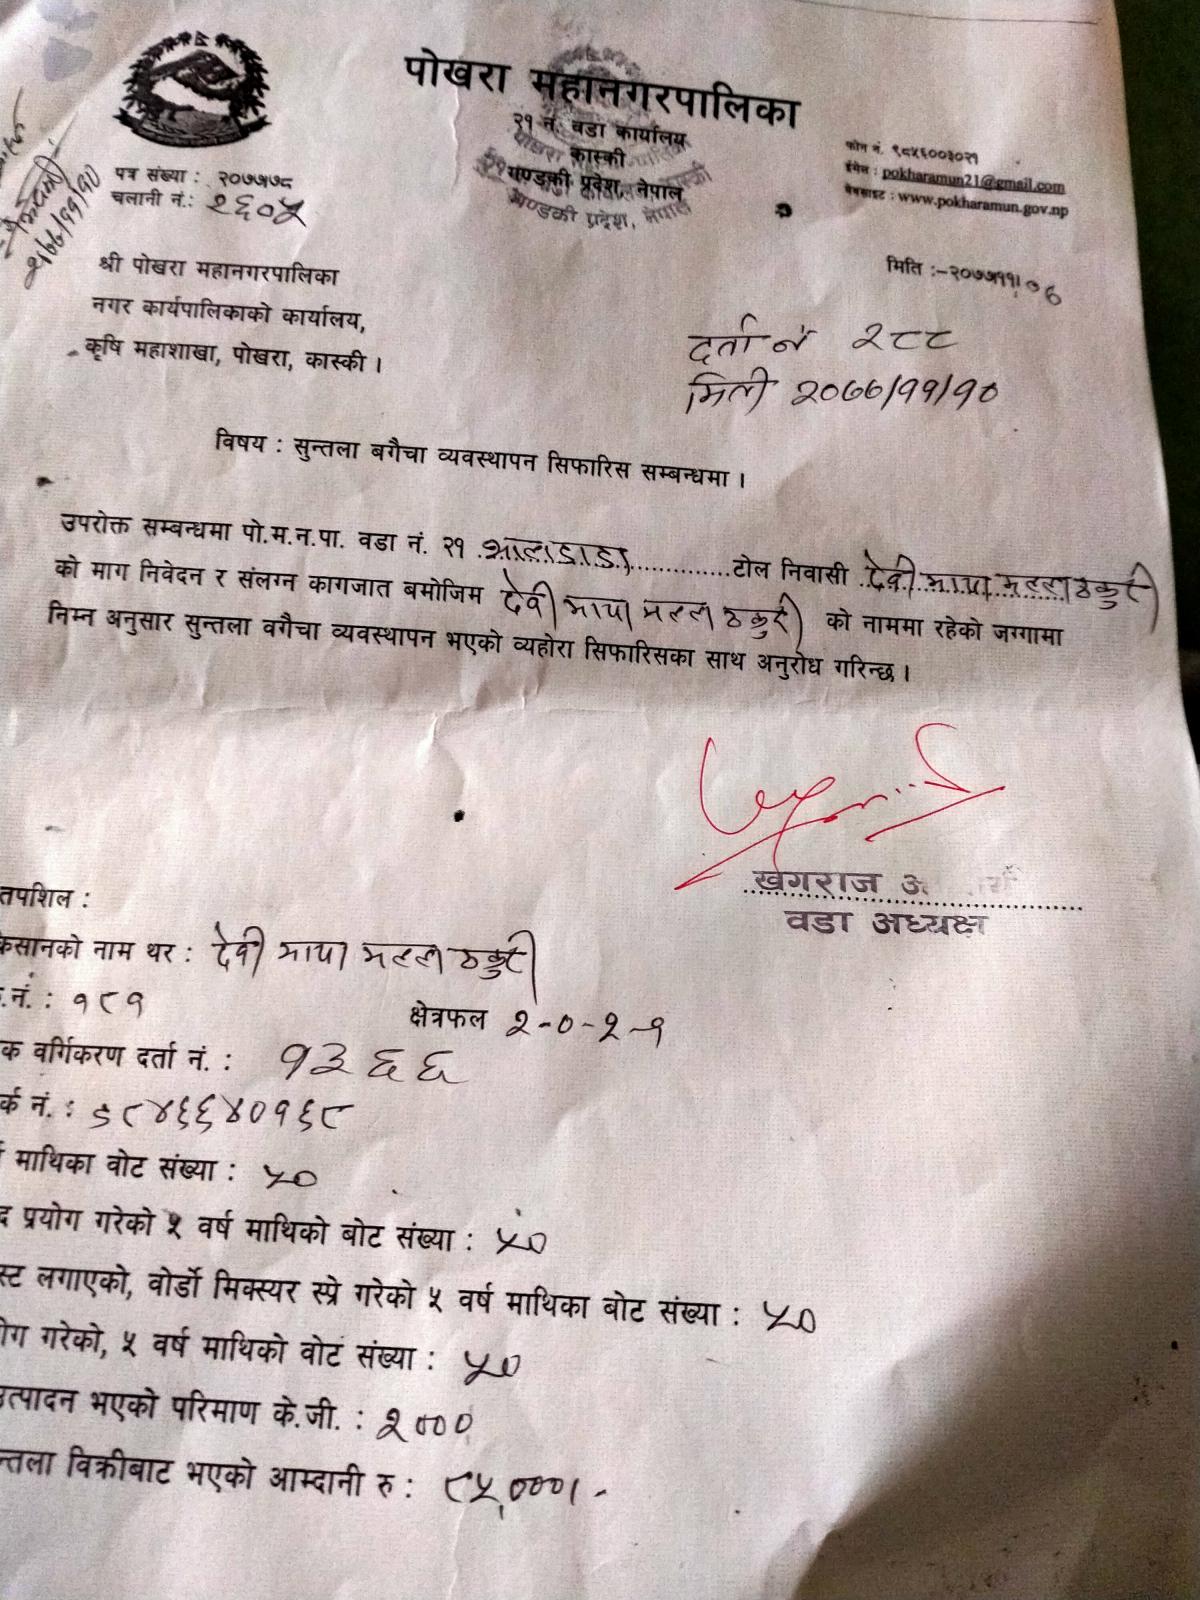 पोखरा महानगरपालिका
२१ नं. वडा कार्यालय
कास्की
गण्डकी प्रदेश, नेपाल
फोन नं. ९८५६००३०२१
ईमेल : pokharamun21@gmail.com
वेबसाइट : www.pokharamun.gov.np
पत्र संख्या : २०७७।७८
चलानी नं.: २६०५
२०७७/११/१०
मिति :-२०७७।११।०६
श्री पोखरा महानगरपालिका
नगर कार्यपालिकाको कार्यालय,
कृषि महाशाखा, पोखरा, कास्की ।
दर्ता नं २८८
मिती २०७७/११/१०
विषय : सुन्तला बगैचा व्यवस्थापन सिफारिस सम्बन्धमा ।
उपरोक्त सम्बन्धमा पो.म.न.पा. वडा नं. २१ .............टोल निवासी देवी माया मल्ल ठकुरी
को माग निवेदन र संलग्न कागजात बमोजिम देवी माया मल्ल ठकुरी को नाममा रहेको जग्गामा
निम्न अनुसार सुन्तला वगैचा व्यवस्थापन भएको व्यहोरा सिफारिसका साथ अनुरोध गरिन्छ ।
खगराज
वडा अध्यक्ष
तपशिल :
केसानको नाम थर : देवी माया मल्ल ठकुरी
.नं. : १८१ क्षेत्रफल २-०-२-१
क वर्गिकरण दर्ता नं. : १३६६
र्क नं. : ९८४६६४०१६८
माथिका वोट संख्या : ५०
द प्रयोग गरेको ५ वर्ष माथिको बोट संख्या : ५०
स्ट लगाएको, वोर्डो मिक्स्यर स्प्रे गरेको ५ वर्ष माथिका बोट संख्या : ५०
ोग गरेको, ५ वर्ष माथिको वोट संख्या : ५०
उत्पादन भएको परिमाण के.जी. : २०००
न्तला विक्रीबाट भएको आम्दानी रु : ८५,०००।-